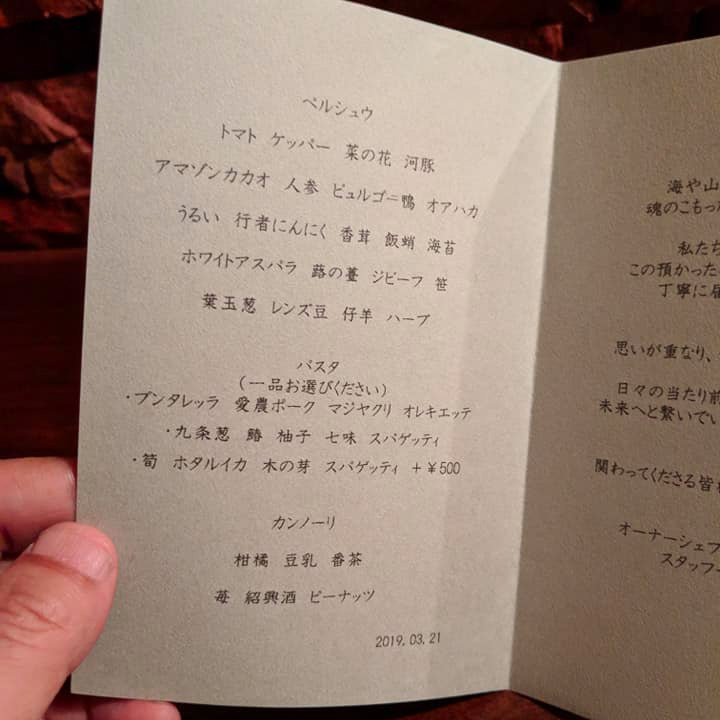 ペルシュウ
トマト ケッパー 菜の花 河豚
アマゾンカカオ 人参 ビュルゴー鴨 オアハカ
うるい 行者にんにく 香茸 飯蛸 海苔
ホワイトアスパラ 蕗の薹 ジビーフ 笹
葉玉葱 レンズ豆 仔羊 ハーブ
パスタ
(一品お選びください)
・プンタレッラ 愛農ポーク マジヤクリ オレキエッテ
・九条葱 鰆 柚子 七味 スパゲッティ
・筍 ホタルイカ 木の芽 スパゲッティ +¥500
カンノーリ
柑橘 豆乳 番茶
苺 紹興酒 ピーナッツ
2019.03.21
海や山
魂のこもっ
私たち
この預かった
丁寧に
思いが重なり、
日々の当たり前
未来へと繋いで
関わってくださる皆
オーナーシェフ
スタッフ